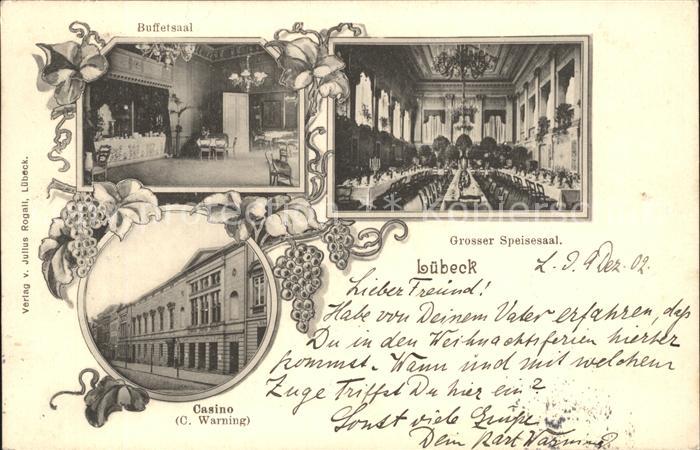 Buffetsaal
Verlag v. Julius Rogall, Lübeck.
Grosser Speisesaal.
Lübeck
L. d. 9 Dez. 02.
Lieber Freund!
Habe von Deinem Vater erfahren, daß
Du in den Weihnachtsferien hierher
kommst. Wann und mit welchem
Zuge triffst Du hier ein?
Sonst viele Grüße
Dein Kart Warning
Casino
(C. Warning)